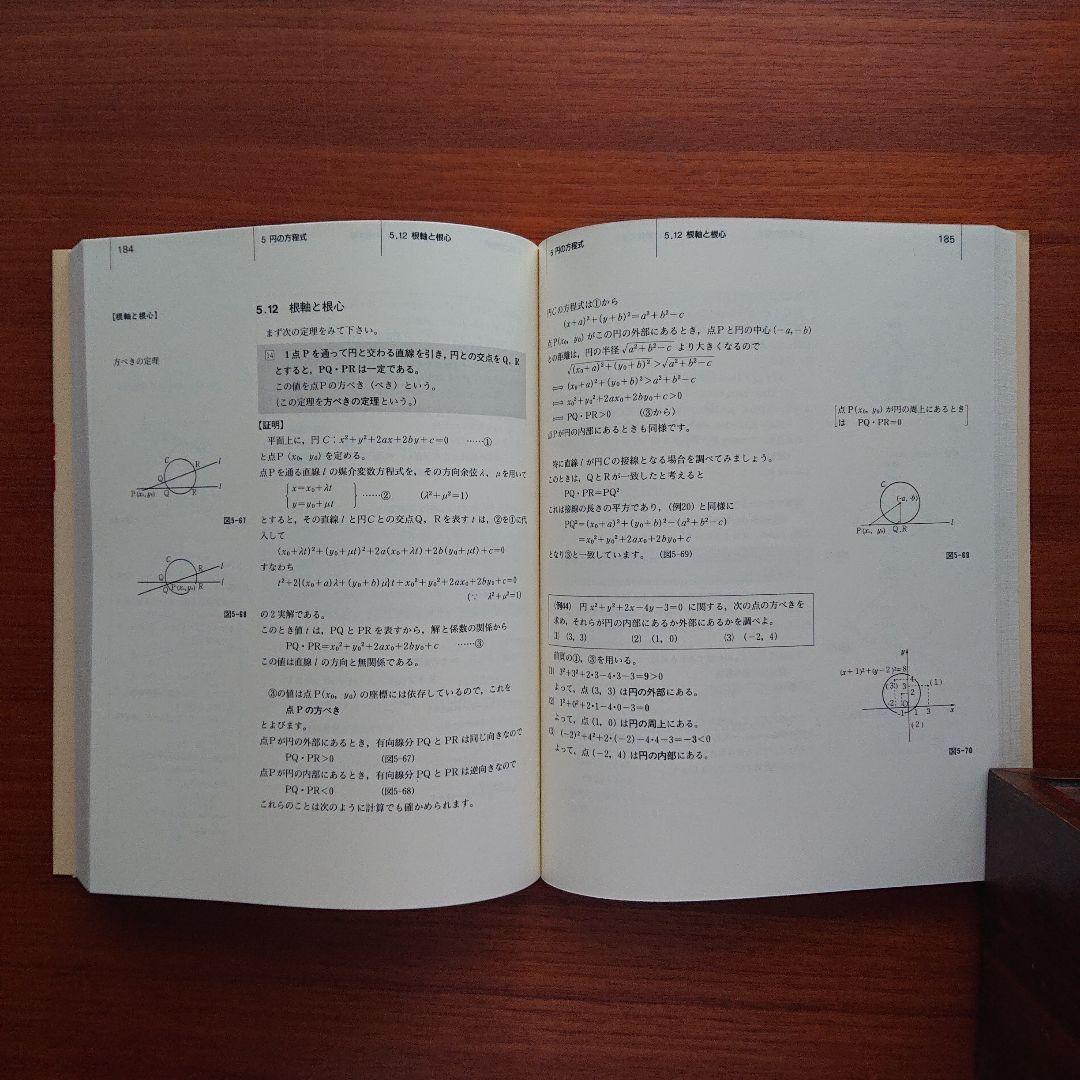 184
5 円の方程式
5.12 根軸と根心
【根軸と根心】
5.12 根軸と根心
まず次の定理をみて下さい。
方べきの定理
14 1点Pを通って円と交わる直線を引き,円との交点をQ, R
とすると,PQ・PRは一定である。
この値を点Pの方べき(べき)という。
(この定理を方べきの定理という。)
【証明】
平面上に,円C:x²+y²+2ax+2by+c=0 ……①
と点P(x₀, y₀)を定める。
点Pを通る直線lの媒介変数方程式を,その方向余弦λ, μを用いて
x=x₀+λt
y=y₀+μt
……② (λ²+μ²=1)
C
R
l
Q
P(x₀, y₀)
Q
R
l
図5-67
とすると,その直線lと円Cとの交点Q, Rを表すtは,②を①に代
入して
(x₀+λt)²+(y₀+μt)²+2a(x₀+λt)+2b(y₀+μt)+c=0
すなわち
t²+2{(x₀+a)λ+(y₀+b)μ}t+x₀²+y₀²+2ax₀+2by₀+c=0
(∵ λ²+μ²=1)
C
R
l
Q
P(x₀, y₀)
Q
R
l
図5-68
の2実解である。
このとき値tは,PQとPRを表すから,解と係数の関係から
PQ・PR=x₀²+y₀²+2ax₀+2by₀+c ……③
この値は直線lの方向と無関係である。
③の値は点P(x₀, y₀)の座標には依存しているので,これを
点Pの方べき
とよびます。
点Pが円の外部にあるとき,有向線分PQとPRは同じ向きなので
PQ・PR>0 (図5-67)
点Pが円の内部にあるとき,有向線分PQとPRは逆向きなので
PQ・PR<0 (図5-68)
これらのことは次のように計算でも確かめられます。
5 円の方程式
5.12 根軸と根心
185
円Cの方程式は①から
(x+a)²+(y+b)²=a²+b²-c
点P(x₀, y₀)がこの円の外部にあるとき,点Pと円の中心(-a, -b)
との距離は,円の半径√a²+b²-cより大きくなるので
√(x₀+a)²+(y₀+b)²>√a²+b²-c
⟺(x₀+a)²+(y₀+b)²>a²+b²-c
⟺x₀²+y₀²+2ax₀+2by₀+c>0
⟺PQ・PR>0 (③から)
点Pが円の内部にあるときも同様です。
[点P(x₀, y₀)が円の周上にあるとき
は PQ・PR=0]
特に直線lが円Cの接線となる場合を調べてみましょう。
このときは,QとRが一致したと考えると
PQ・PR=PQ²
これは接線の長さの平方であり,(例20)と同様に
PQ²=(x₀+a)²+(y₀+b)²-(a²+b²-c)
=x₀²+y₀²+2ax₀+2by₀+c
となり③と一致しています。(図5-69)
C
(-a, -b)
P(x₀, y₀)
Q, R
l
図5-69
(例44) 円x²+y²+2x-4y-3=0に関する,次の点の方べきを
求め,それらが円の内部にあるか外部にあるかを調べよ。
(1) (3, 3) (2) (1, 0) (3) (-2, 4)
前頁の①,③を用いる。
(1) 3²+3²+2・3-4・3-3=9>0
よって,点(3, 3)は円の外部にある。
(2) 1²+0²+2・1-4・0-3=0
よって,点(1, 0)は円の周上にある。
(3) (-2)²+4²+2・(-2)-4・4-3=-3<0
よって,点(-2, 4)は円の内部にある。
y
(x+1)²+(y-2)²=8
4
(3)
3
(1)
2
-2
O
-1
1
3
x
(2)
図5-70